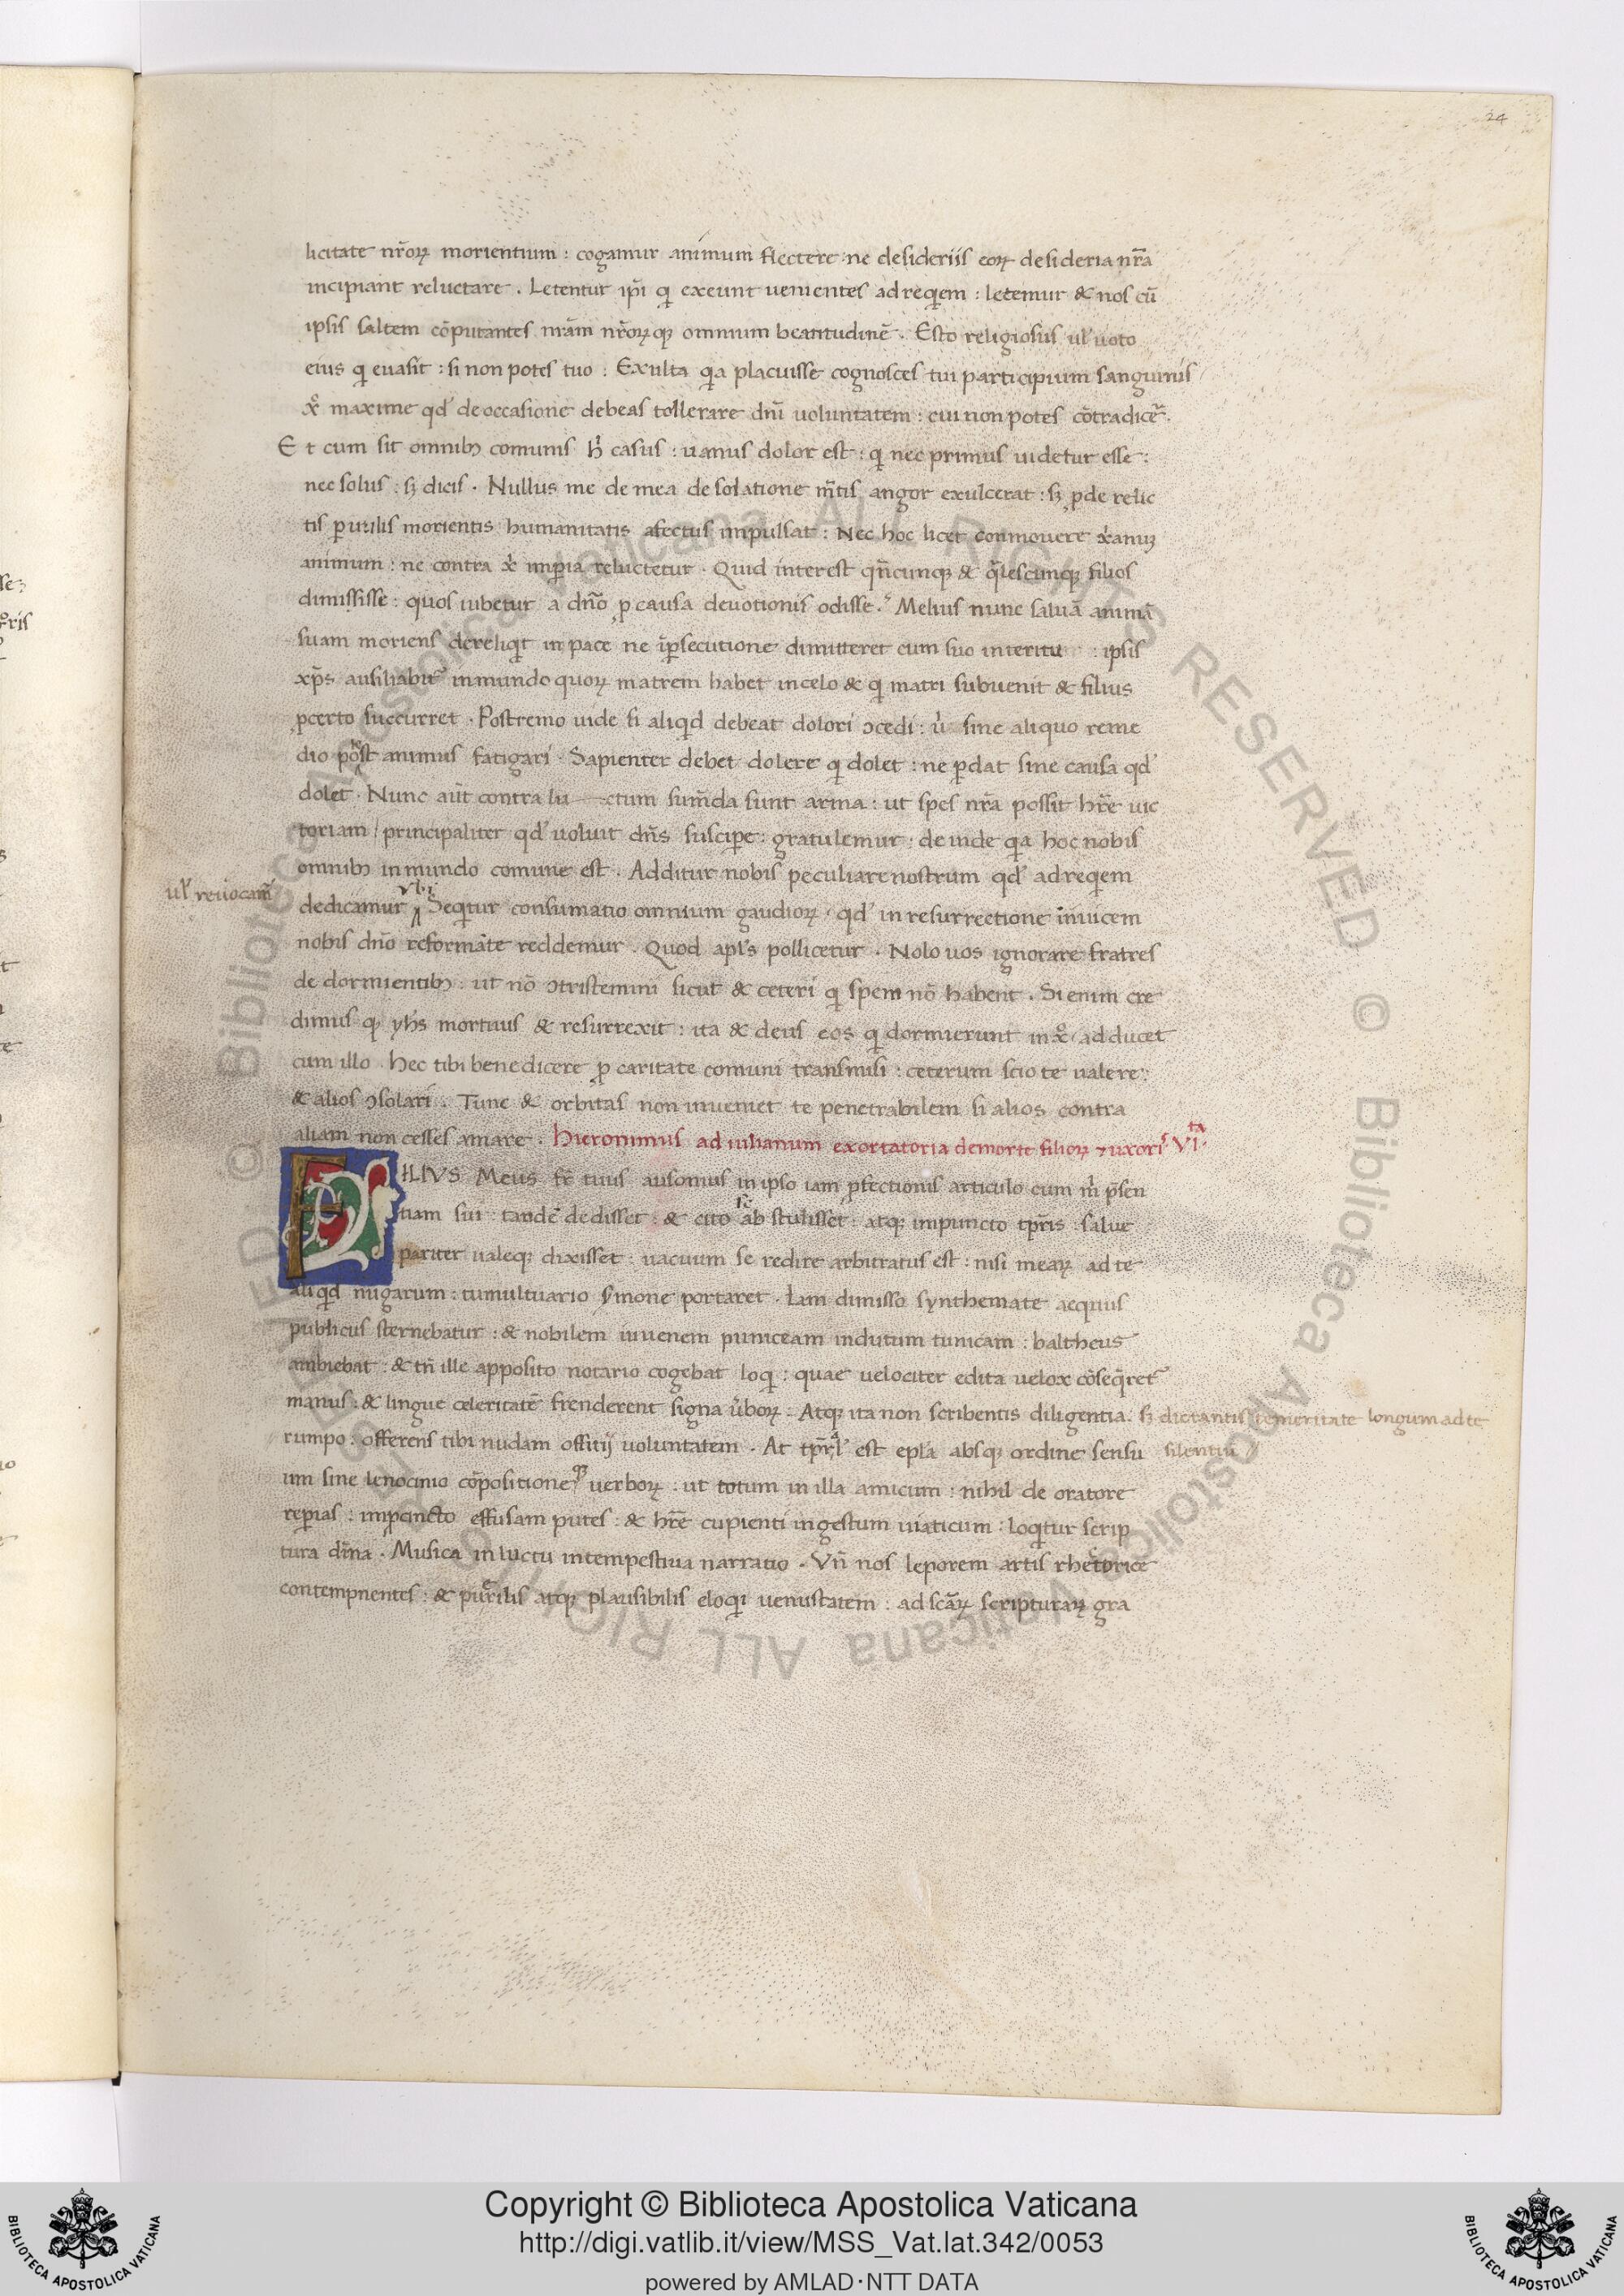 24
licitate nr̄oꝝ morientium : cogamur animum flectere ne desideriis eoꝝ desideria nr̄a
incipiant reluctare . Letentur ip̄i qi exeunt uenientes ad reqiem : letemur & nos cū
ipsis saltem cōputantes nr̄am nr̄oꝝqꝫ omnium beatitudinē . Esto religiosus ul' uoto
eius qi euasit : si non potes tuo : Exulta qia placuisse cognosces tui participium sanguinis
xo maxime qd' de occasione debeas tollerare dn̄i uoluntatem : cui non potes cōtradicer̄ .
Et cum sit omnibꝫ comunis hi casus : uanus dolor est : qi nec primus uidetur esse :
nec solus : sꝫ dicis . Nullus me de mea desolatione mr̄tis angor exulcerat : sꝫ ꝓ de relic
tis ꝑuulis morientis humanitatis afectus impulsat : Nec hoc licet conmouere xi'anuꝫ
animum : ne contra xi imꝑia reluctetur . Quid interest qn̄cunqꝫ & qalescunqꝫ filios
dimississe : quos iubetur a dn̄o ꝓ causa deuotionis odisse . Melius nunc saluā animā
suam moriens dereliqit in pace ne iꝑsecutione dimitteret cum suo interitu : ipsis
xp̄s ausiliabitr inmundo quoꝝ matrem habet in celo & qi matri subuenit & filius
ꝓcerto succurret . Postremo uide si aliqid debeat dolori ɔcedi : ui sine aliquo reme
dio post animus fatigari . Sapienter debet dolere qi dolet : ne ꝑdat sine causa qd'
dolet . Nunc aūt contra lu ctum sum̄da sunt arma : ut spes nr̄a possit hr̄e uic
toriam / principaliter qd' uoluit dn̄s susciꝑe : gratulemur : deinde qia hoc nobis
omnibꝫ in mundo comune est . Additur nobis peculiare nostrum qd' ad reqiem
ul' reuocamr
dedicamur ubi Seqitur consumatio omnium gaudioꝝ . qd' in resurrectione inuicem
nobis dn̄o reformāte reddemur . Quod apl's pollicetur . Nolo uos ignorare fratres
de dormientibꝫ : ut nō ɔtristemini sicut & ceteri qi spem nō habent . Si enim cre
dimus qꝫ yhs mortuus & resurrexit : ita & deus eos qi dormierunt in xo adducet
cum illo . Hec tibi benedicere ꝓ caritate comuni transmisi : ceterum scio te ualere :
& alios ɔsolari . Tunc & orbitas non inueniet te penetrabilem si alios contra
aliam non cesses amare . Hieronimus ad iulianum exortatoria de morte filioꝝ ⁊ uxoris . VIta .
FILIVS Meus fr̄ tuus ausonius in ipso iam ꝓfectionis articulo cum mi p̄sen
tiam sui : tandē dedisset : & cito abstulisset : atqꝫ impuncto tp̄ris salue
pariter ualeqꝫ dixisset : uacuum se redire arbitratus est : nisi meaꝝ ad te
aliqid nugarum : tumultuario s̄mone portaret . Iam dimisso synthemate aequus
publicus sternebatur : & nobilem iuuenem puniceam indutum tunicam : baltheus
ambiebat : & tn̄ ille apposito notario cogebat loqi : quae uelociter edita uelox cōseqeretr
manus : & lingue celeritatē frenderent signa ūboꝝ . Atqꝫ ita non scribentis diligentia . sꝫ dictantis temeritate longum ad te
rumpo : offerens tibi nudam offitij uoluntatem . At tp̄ral' est epl'a absqꝫ ordine sensu silentiū
um sine lenocinio cōpositioneqꝫ uerboꝝ : ut totum in illa amicum : nihil de oratore
reꝑias : imꝓcinctu effusam putes : & hr̄e cupienti ingestum uiaticum : loqitur scrip
tura din̄a . Musica in luctu intempestiua narratio . Vn̄ nos leporem artis rhetorice
contempnentes : & puerilis atqꝫ plausibilis eloqi uenustatem : ad scāꝝ scripturaꝝ gra
Copyright © Biblioteca Apostolica Vaticana
http://digi.vatlib.it/view/MSS_Vat.lat.342/0053
powered by AMLAD·NTT DATA